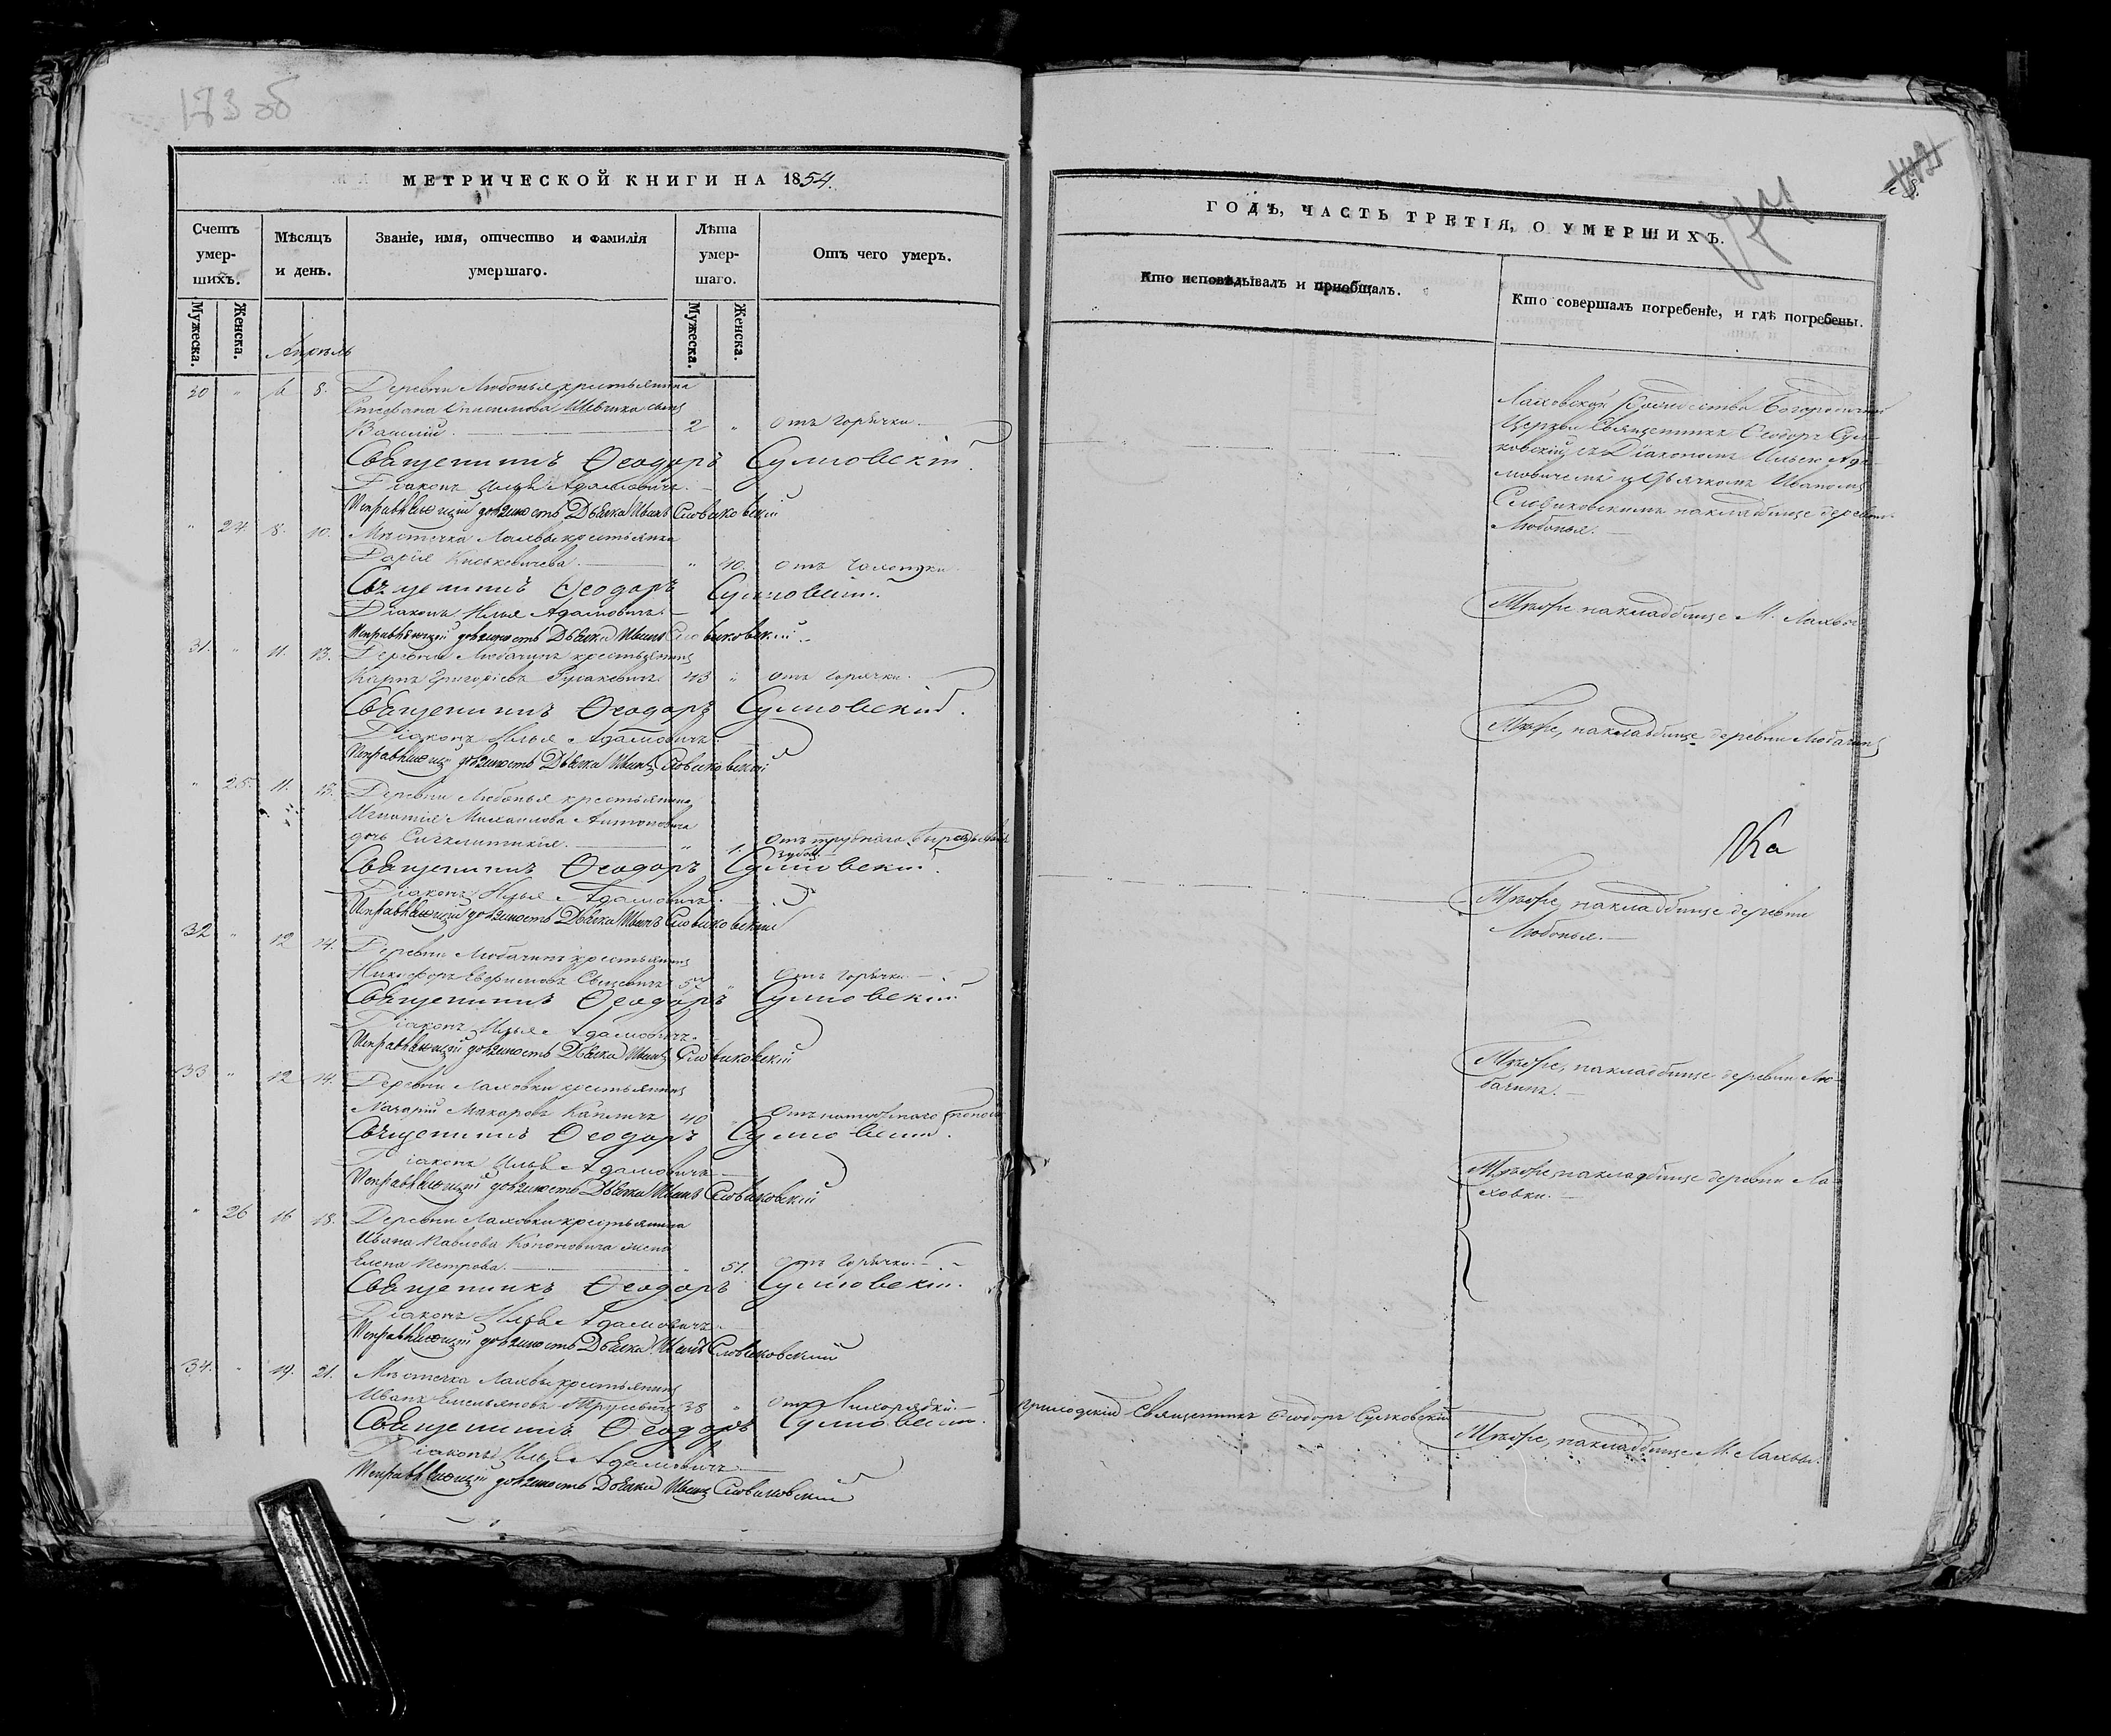 173 об
МЕТРИЧЕСКОЙ КНИГИ НА 1854.
Счетъ умершихъ.
Мѣсяцъ и день.
Званіе, имя, отчество и фамилія умершаго.
Лѣта умершаго.
Отъ чего умеръ.
Мужеска.
Женска.
Мужеска.
Женска.
Апрѣль
30 " 6 8. Деревни Любонья крестьянина
Стефана сынъ
Василій. 2 " отъ горячки.
Священникъ Ѳеодоръ Сулковскій.
Діаконъ Илья Адамовичъ.
Исправляющій должность Дьячка Иванъ Словиковскій
" 24 8. 10. Мѣстечка Лахвы крестьянка
Дарія " 40. отъ
Священникъ Ѳеодоръ Сулковскій.
Діаконъ Илья Адамовичъ.
Исправляющій должность Дьячка Иванъ Словиковскій
31. " 11. 13. Деревни Любачинъ крестьянинъ
Карпъ Григорьевъ 43 " отъ горячки.
Священникъ Ѳеодоръ Сулковскій.
Діаконъ Илья Адамовичъ.
Исправляющій должность Дьячка Иванъ Словиковскій
" 25. 11. 13. Деревни Любонья крестьянина
Игнатія Михайлова Антоновича
дочь Сигклитикія. " 1. Отъ труднаго
зубовъ
Священникъ Ѳеодоръ Сулковскій.
Діаконъ Илья Адамовичъ.
Исправляющій должность Дьячка Иванъ Словиковскій
32 " 12 14. Деревни Любачинъ крестьянинъ
Никифоръ Евфимовъ 57 " Отъ горячки.
Священникъ Ѳеодоръ Сулковскій
Діаконъ Илья Адамовичъ.
Исправляющій должность Дьячка Иванъ Словиковскій
33 " 12 14. Деревни Лаховки крестьянинъ
Макаровъ 40 Отъ поноса
Священникъ Ѳеодоръ Сулковскій.
Діаконъ Илья Адамовичъ
Исправляющій должность Дьячка Иванъ Словиковскій
" 26 16 18. Деревни Лаховки крестьянина
Ивана Павлова Кононовича жена
Елена Петрова. " 51. отъ горячки.
Священникъ Ѳеодоръ Сулковскій.
Діаконъ Илья Адамовичъ
Исправляющій должность Дьячка Иванъ Словиковскій
34. " 19. 21. Мѣстечка Лахвы крестьянинъ
Иванъ Емельяновъ 38 " Отъ лихорадки.
Священникъ Ѳеодоръ Сулковскій.
Діаконъ Илья Адамовичъ
Исправляющій должность Дьячка Иванъ Словиковскій
ГОДЪ, ЧАСТЬ ТРЕТІЯ, О УМЕРШИХЪ.
Кто исповѣдывалъ и приобщалъ.
Кто совершалъ погребеніе, и гдѣ погребены.
Лаховской Рождество Богородичной
Церкви Священникъ Ѳеодоръ Сул-
ковскій съ Діакономъ Ильею Ада-
мовичемъ и Дьячкомъ Иваномъ
Словиковскимъ на кладбище деревни
Любонья.
Тѣже на кладбище М. Лахвы
Тѣже, на кладбище деревни Любачинъ
Тѣже, на кладбище деревни
Любонья.
Тѣже, на кладбище деревни Лю-
бачинъ.
Тѣже, на кладбище деревни Ла-
ховки.
приходскій Священникъ Ѳеодоръ Сулковскій
Тѣже, на кладбище М. Лахвы.